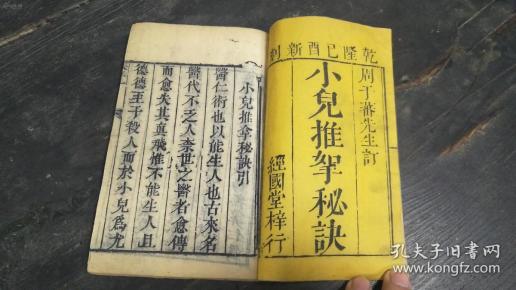 乾隆已酉新刻
周于蕃先生訂
小兒推拏秘訣
經國堂梓行
小兒推拿秘訣引
醫仁術也以能生人也古來名
醫代不乏人柰世之醫者愈傳
而愈失其真飛惟不能生人且
德德至于殺人而於小兒為尤
孔夫子旧书网